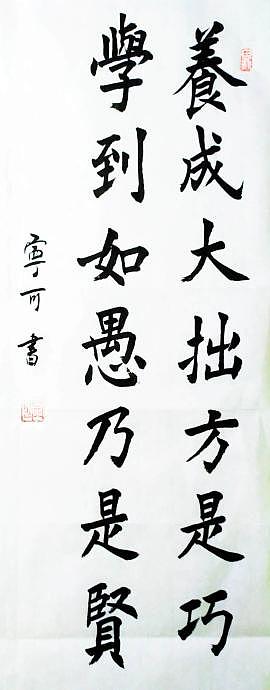 養成大拙方是巧
學到如愚乃是賢
寧可書